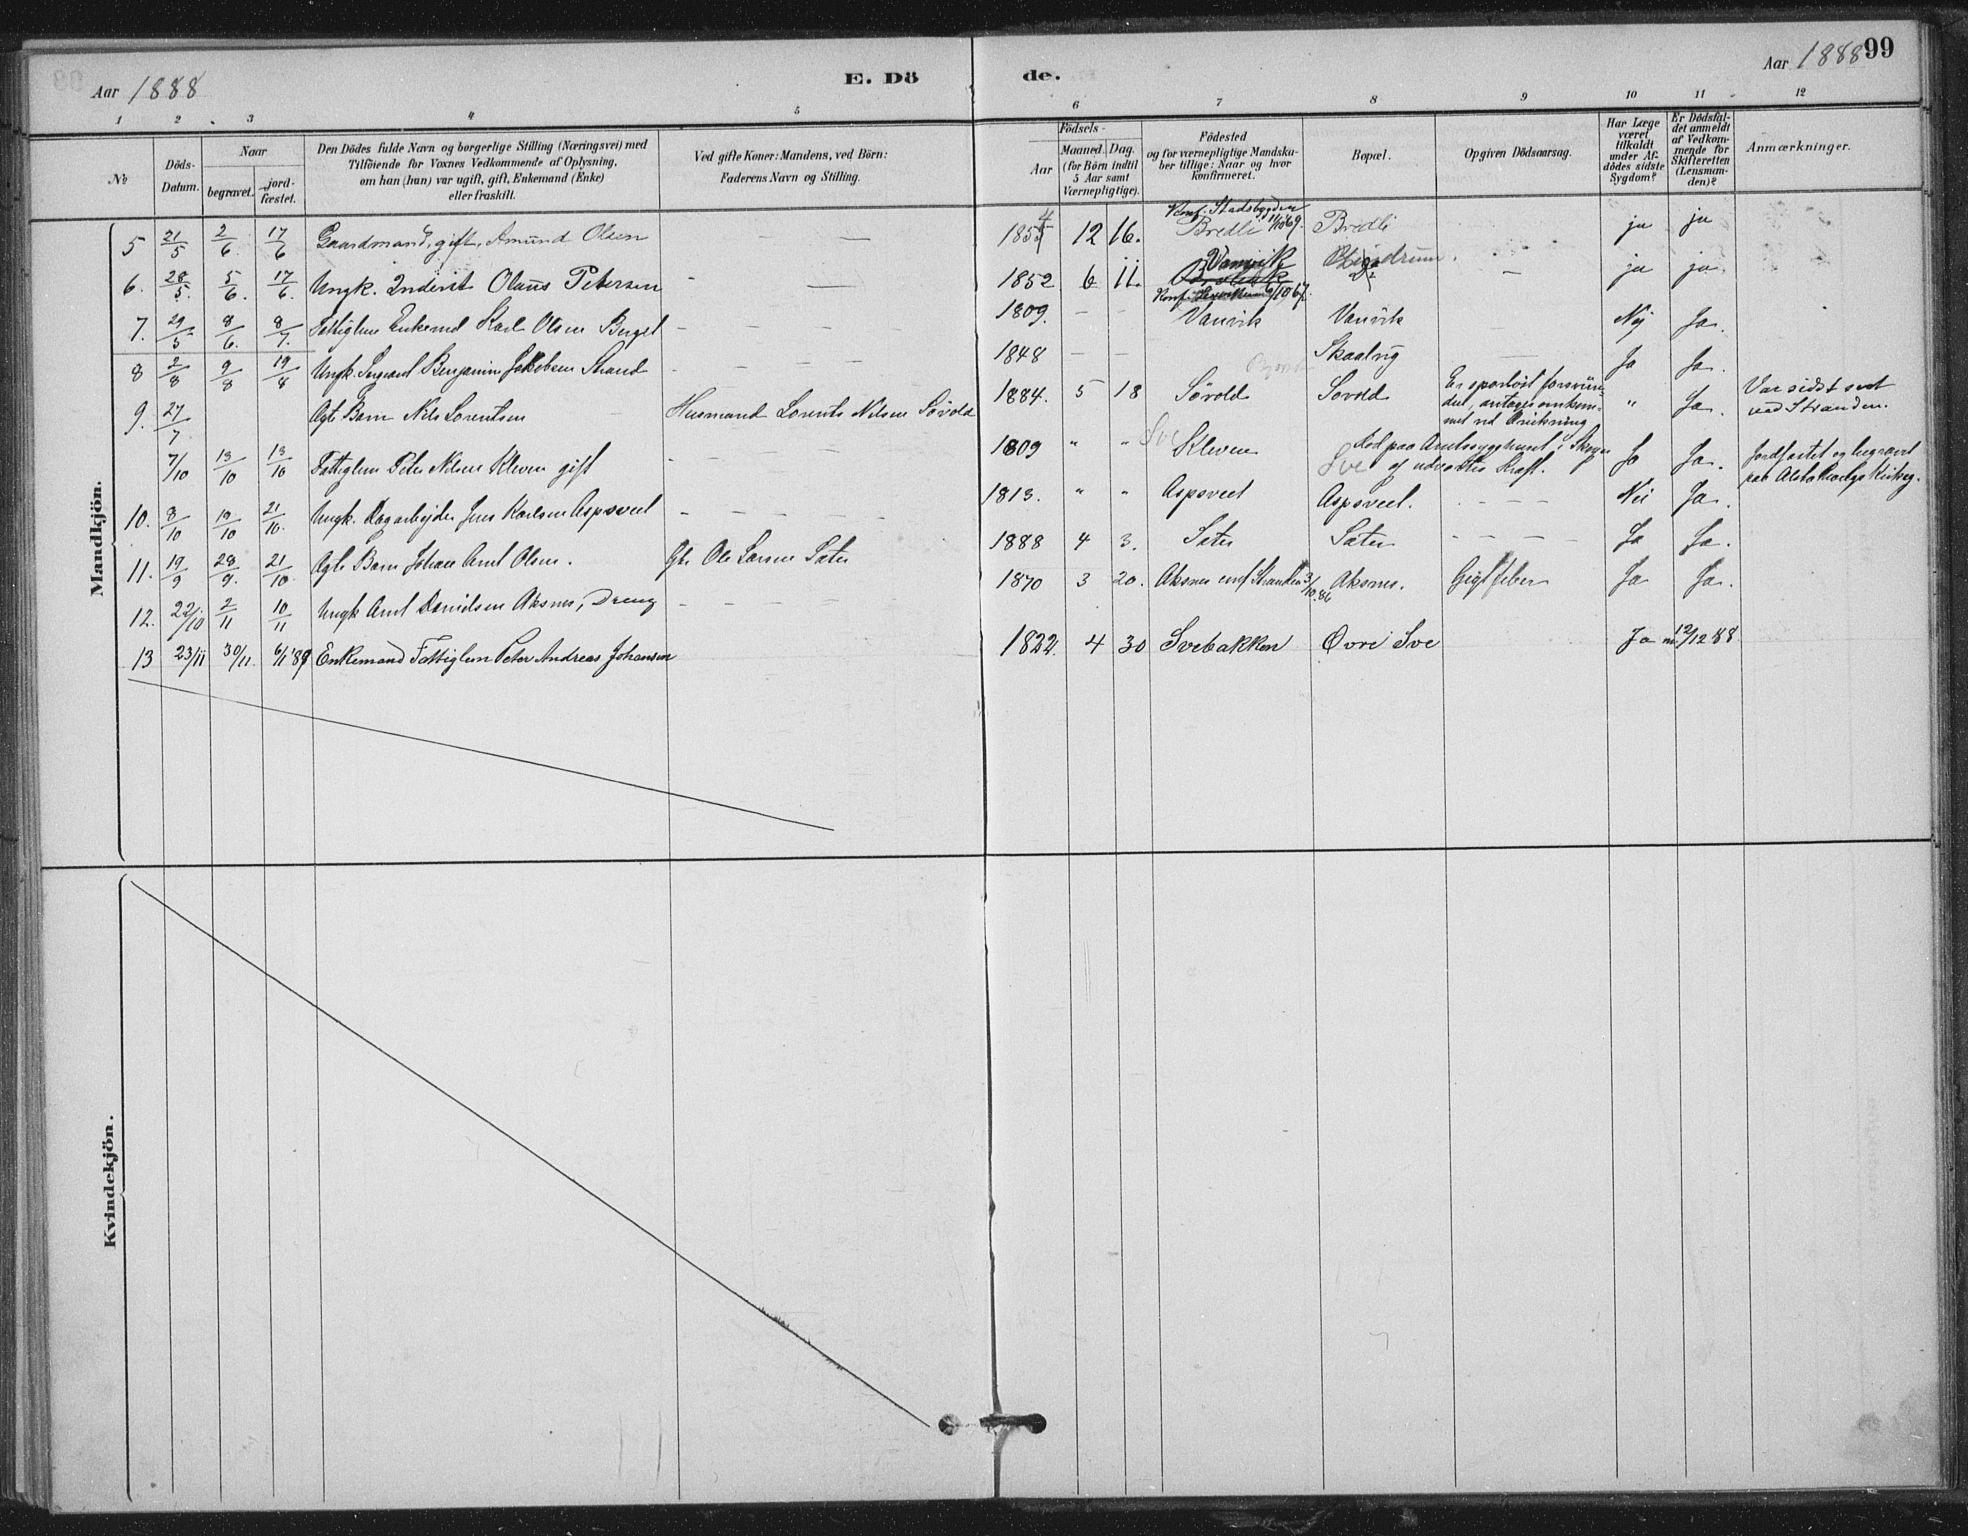 Aar 1888
E. Dö
de.
Aar 1888 99
1 2 3 4 5 6 7 8 9 10 11 12
№
Döds-Datum.
Naar
begravet.
jord-fæstet.
Den Dödes fulde Navn og borgerlige Stilling (Næringsvei) med
Tilföiende for Voxnes Vedkommende af Oplysning,
om han (hun) var ugift, gift, Enkemand (Enke)
eller fraskilt.
Ved gifte Koner: Mandens, ved Börn:
Faderens Navn og Stilling.
Födsels-
Aar
Maaned. Dag.
(for Börn indtil
5 Aar samt
Værnepligtige).
Födested
og for værnepligtige Mandska-
ber tillige: Naar og hvor
konfirmeret.
Bopæl.
Opgiven Dödsaarsag.
Har Læge
været
tilkaldt
under Af-
dödes sidste
Sygdom?
Er Dödsfal-
det anmeldt
af Vedkom-
mende for
Skifteretten
(Lensman-
den)?
Anmærkninger.
Mandkjön.
5 21/5 2/6 17/6 Gaardmand, gift, Amund Olsen — — 12 16. Konf. Stadsbygden 1/10 69. Bredli Bredli ja ja
6. 28/5. 5/6. 17/6. Ungk. Inderst Olaus Petersen - — 1852 6 11. Vanvik — ja ja.
7. 29/5 8/6. 8/7. Fattiglem Enkemd Karl Olsen - — — 1809. — — Vanvik Vanvik Nej Ja.
8 2/8 9/8 19/8 Ungk. Benjamin Jakobsen Strand - — — — 1848 — — Skaalvig — Ja Ja.
9. 27/7 Ægte Barn Nils Lorentsen Husmand Lorents Nilsen Sövold 1884. 5 18 Sövold Sovold Er sporløst forsvun-
det, antages omkom-
met ved " Ja. Var sidst seet
ved Stranden.
7/10 13/10 13/10 Fattiglem Peter Nilsen Kleven gift - — — — 1809 " " Sve Kleven Sve død paa Amtssygehuset i
af udvortes Kræft. Ja Ja. Jordfæstet og begravet
paa
10. 8/10 19/10 21/10. Ungk. Dagarbejder Jens Karlsen Aspsveet - — — — — 1813. " " Aspsveet Aspsveet. - — — — Nei Ja.
11. 19/9 28/9. 21/10. Ægte Barn Johan Arnt Olsen. Gbr Ole Larsen Sater 1888 4 3. Sater Sater - — — — Ja Ja.
12. 22/10 2/11 10/11 Ungk Arnt Danielsen Aksnes, Dreng - — — — 1870 3 20. Aksnes conf Stranden 3/10.86 Aksnes. Gigtfeber Ja Ja.
13 23/11 30/11. 6/1 89 Enkemand Fattiglem Peter Andreas Johansen 1822. 4 30 Svebakken Øvre Sve Ja 12/12 88
Kvindekjön.